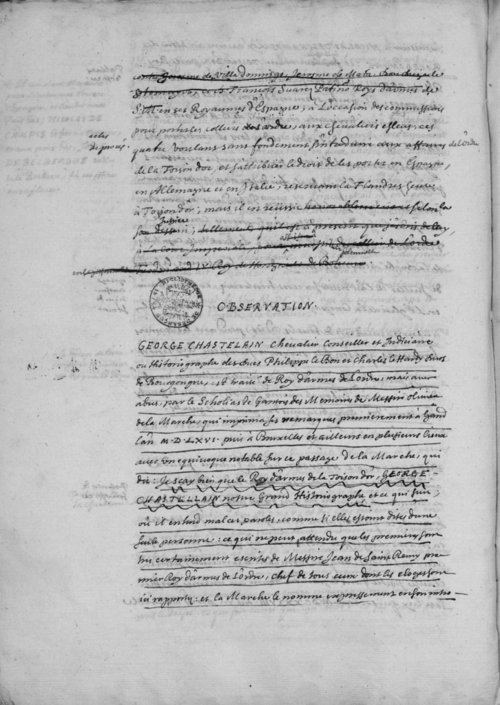 de Ville domingo, Jerosme de Mata,
et François Suarez Patino Roys d'armes de
S. M. en ses Royaumes d'Espagne, a l'occasion des commissions
pour porter les colliers aux chevaliers esleus, ces
quatre voulans sans fondement s'introduire aux affaires de l'ordre
de la Toison d'or, et s'attribuer le droit de les porter en Espagne,
en Allemagne et en Italie, reservant la Flandres seule
à Toison d'or; mais il en reussit selon la
justice
OBSERVATION.
GEORGE CHASTELAIN Chevalier Conseiller et Indiciaire
ou Historiographe des Ducs Philippe le Bon et Charles le Hardy Ducs
de Bourgongne, est traité de Roy d'armes de l'ordre, mais avec
abus, par le Scholias de Gantois des Memoires de Messire Olivier
de la Marche, qui imprima ses remarques premierement à Gand
l'an M.D.LXVI. puis à Bruxelles et ailleurs en plusieurs lieux
avec un equivoque notable sur ce passage de la Marche, qui
dit: Je sçay bien que le Roy d'armes de la Toison d'or, GEORGE
CHASTELLAIN nostre Grand Historiographe et ce qui suit,
où il entend mal ces paroles, comme si elles estoient dites d'une
seule personne: ce qui ne peut, attendu que les premiers sont
certainement de Messire Jean de Saint Remy pre-
mier Roy d'armes de l'ordre, chef de tous ceux dont les eloges sont
icy rapportez: et la Marche le nomme expressement en son intro-